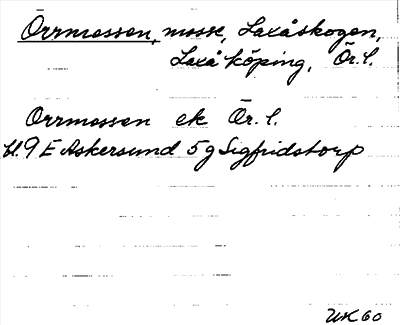 Örrmossen, mosse, Laxåskogen,
Laxå köping, Ör. l.
Orrmossen ek Ör. l.
bl. 9 E Askersund 5 g Sigfridstorp
UK 60